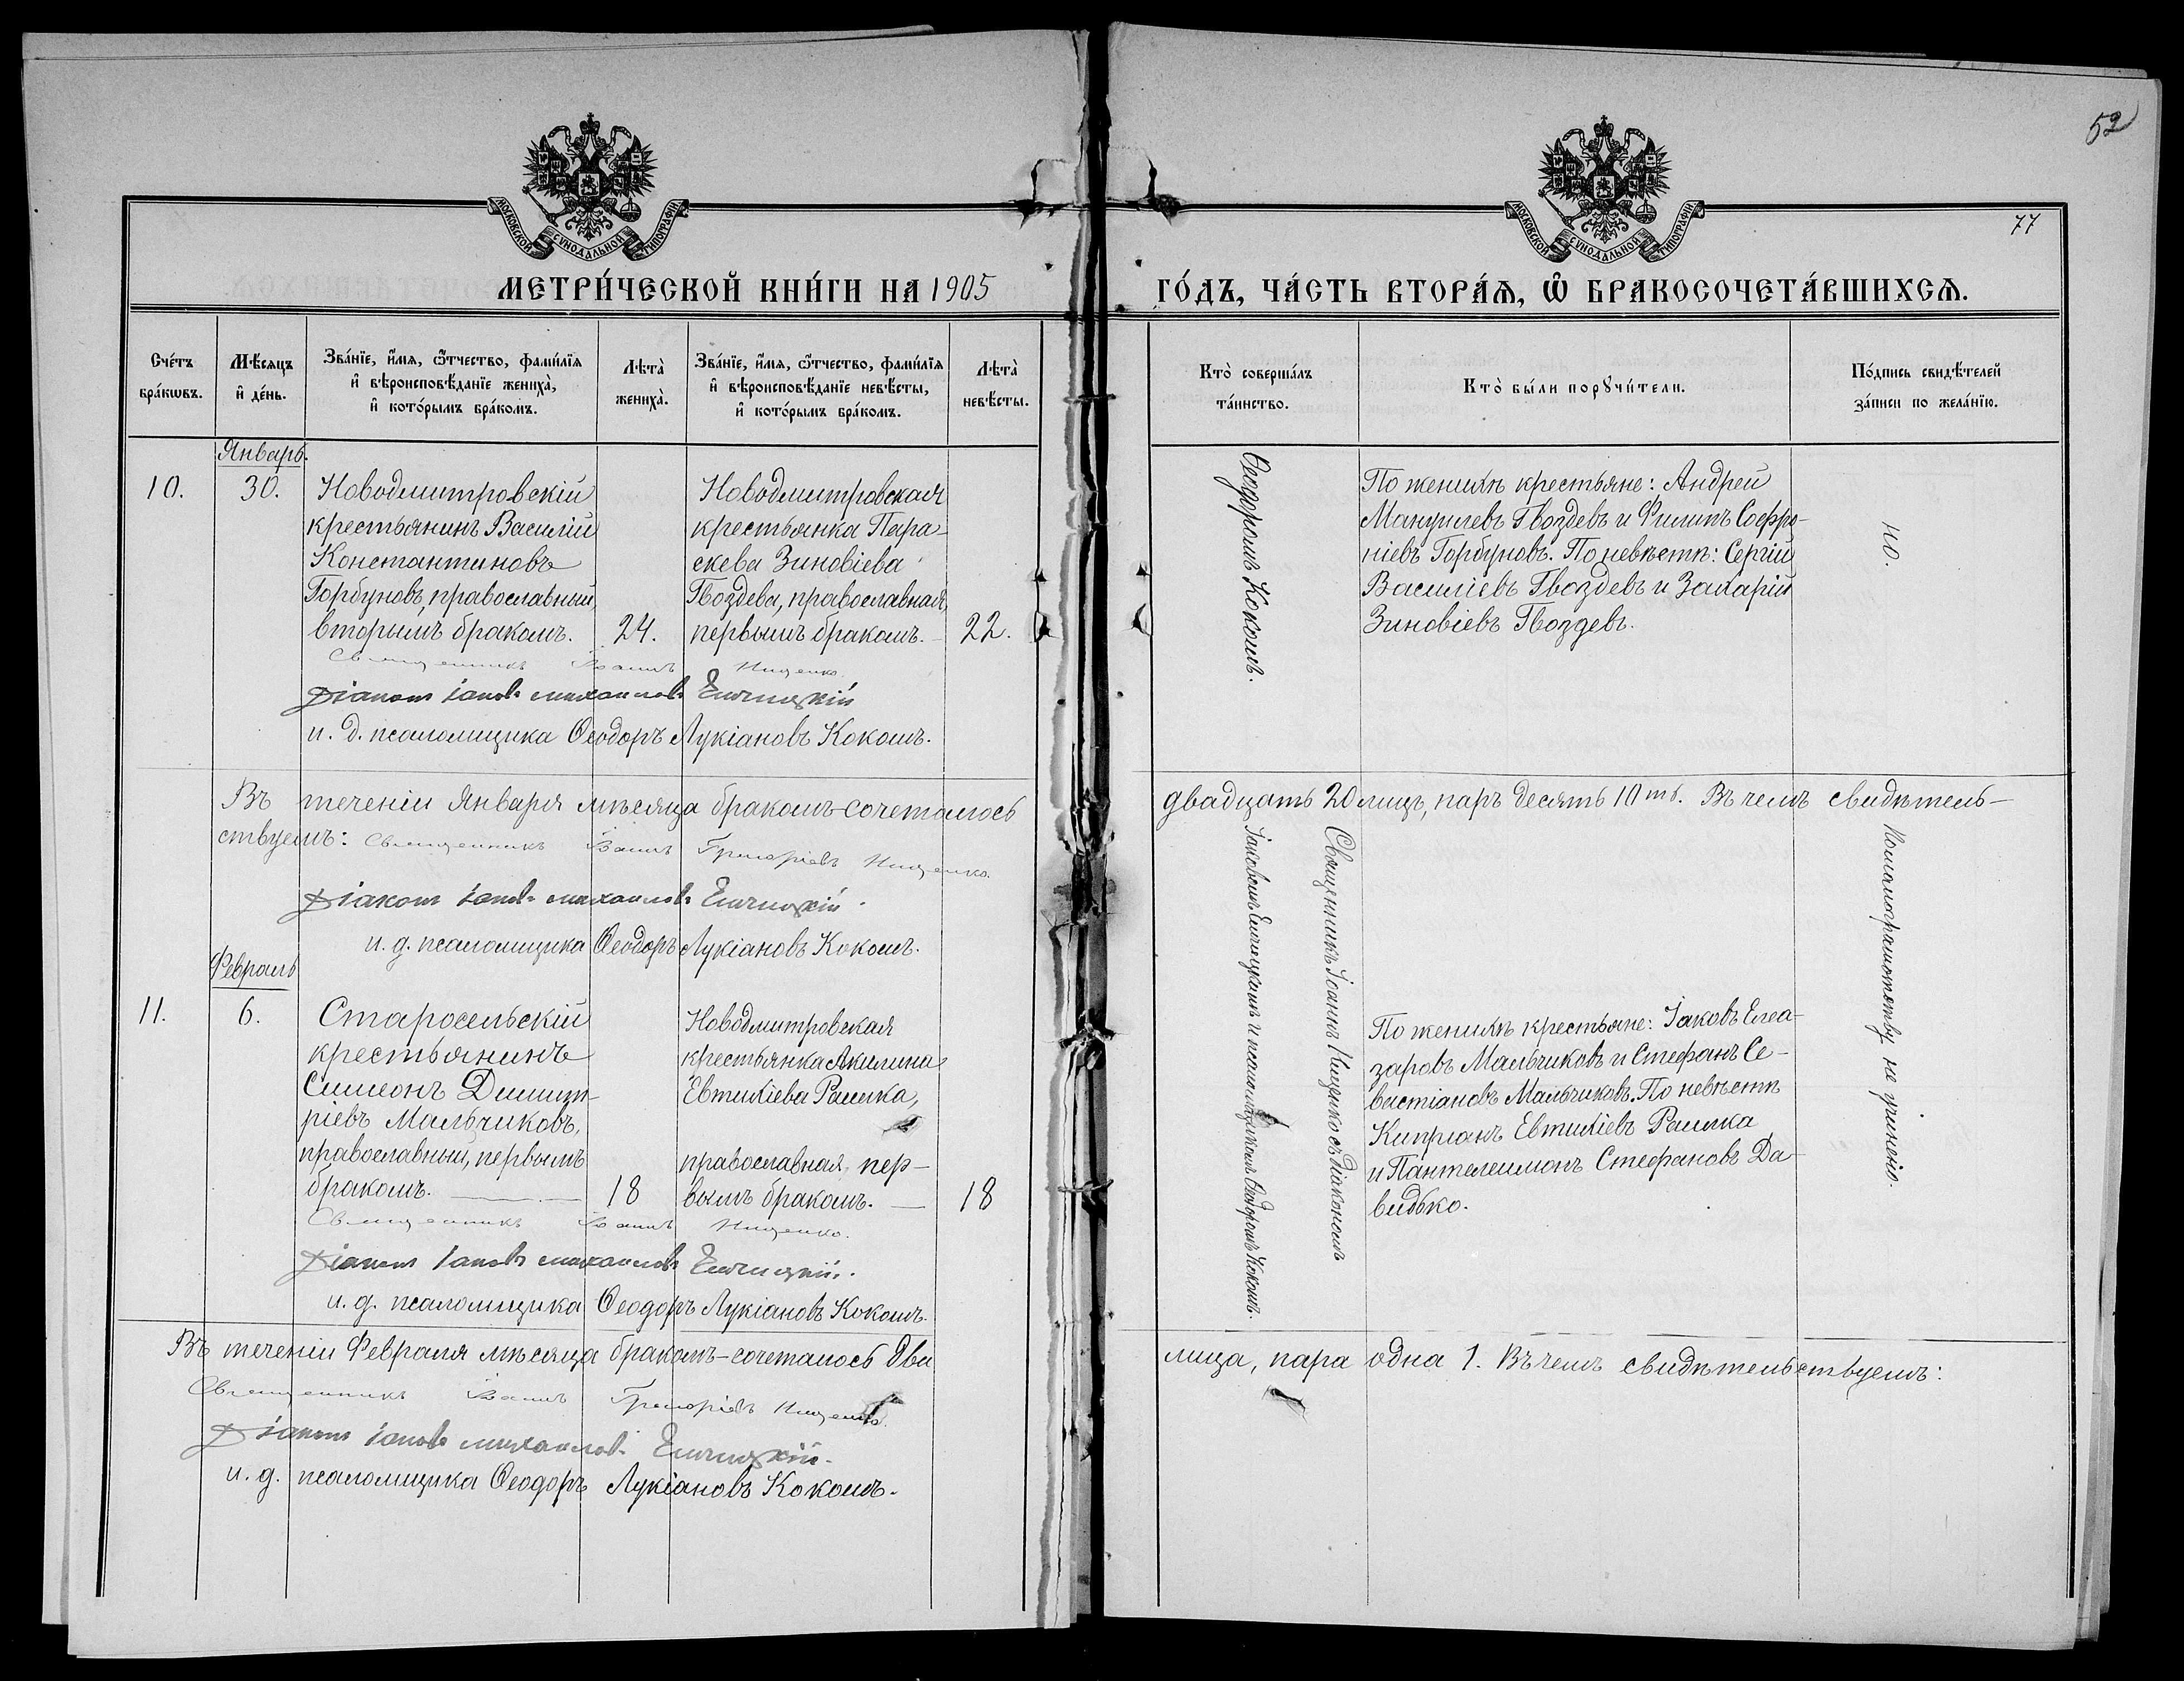 52
77
МОСКОВСКОЙ СѴНОДАЛЬНОЙ ТИПОГРАФІИ
МОСКОВСКОЙ СѴНОДАЛЬНОЙ ТИПОГРАФІИ
МЕТРИ́ЧЕСКОЙ КНИ́ГИ НА 1905 ГО́ДЪ, ЧА́СТЬ ВТОРА́Ѧ, Ѡ҆ БРАКОСОЧЕТА́ВШИХСѦ.
Сче́тъ
бра́кѡвъ.
Мѣ́сяцъ
и҆ де́нь.
Зва́нїе, и҆́мя, ѻ҆́тчество, фами́лїя
и҆ вѣроисповѣ́данїе жениха̀,
и҆ кото́рымъ бра́комъ.
Лѣта̀
жениха̀.
Зва́нїе, и҆́мя, ѻ҆́тчество, фами́лїя
и҆ вѣроисповѣ́данїе невѣ́сты,
и҆ кото́рымъ бра́комъ.
Лѣта̀
невѣ́сты.
Кто̀ соверша́лъ
та́инство.
Кто̀ бы́ли порꙋчи́тели.
По́дпись свидѣ́телей
за́писи по жела́нїю.
Январь.
10.
30.
Новодмитровскій
крестьянинъ Василій
Константиновъ
Горбуновъ, православный,
вторымъ бракомъ.
24.
Новодмитровская
крестьянка Пара-
скева Зиновіева
Гвоздева, православная,
первымъ бракомъ.
22.
Ѳеодоромъ Кокошъ.
По женихѣ крестьяне: Андрей
Мануилевъ Гвоздевъ и Филипъ Софро-
ніевъ Горбуновъ. По невѣстѣ: Сергій
Василіевъ Гвоздевъ и Захарій
Зиновіевъ Гвоздевъ.
Священникъ Іоаннъ Нищенко
Діаконъ Іаковъ Михаиловъ
и. д. псаломщика Ѳеодоръ Лукіановъ Кокошъ.
Въ теченіи Января мѣсяца бракомъ-сочеталось двадцать 20 лицъ, паръ десять 10ть. Въ чемъ свидѣтель-
ствуемъ: Священникъ Іоаннъ Григоріевъ Нищенко.
Діаконъ Іаковъ Михаиловъ
и. д. псаломщика Ѳеодоръ Лукіановъ Кокошъ.
Февраль
11.
6.
Старосельскій
крестьянинъ
Симеонъ Димит-
ріевъ Мальчиковъ,
православный, первымъ
бракомъ.
18
Новодмитровская
крестьянка Акилина
Евтихіева Рашка,
православная, пер-
вымъ бракомъ.
18
Священникъ Іоаннъ Нищенко съ діакономъ
Іаковомъ и псаломщикомъ Ѳеодоромъ Кокошъ.
По женихѣ крестьяне: Іаковъ Елеа-
заровъ Мальчиковъ и Стефанъ Се-
вастіановъ Мальчиковъ. По невѣстѣ
Кипріанъ Евтихіевъ Рашка
и Пантелеимонъ Стефановъ Да-
видько.
не учинено.
Священникъ Іоаннъ Нищенко.
Діаконъ Іаковъ Михаиловъ
и. д. псаломщика Ѳеодоръ Лукіановъ Кокошъ.
Въ теченіи Февраля мѣсяца бракомъ-сочеталось два лица, пара одна 1. Въ чемъ свидѣтельствуемъ:
Священникъ Іоаннъ Григоріевъ Нищенко.
Діаконъ Іаковъ Михаиловъ
и. д. псаломщика Ѳеодоръ Лукіановъ Кокошъ.